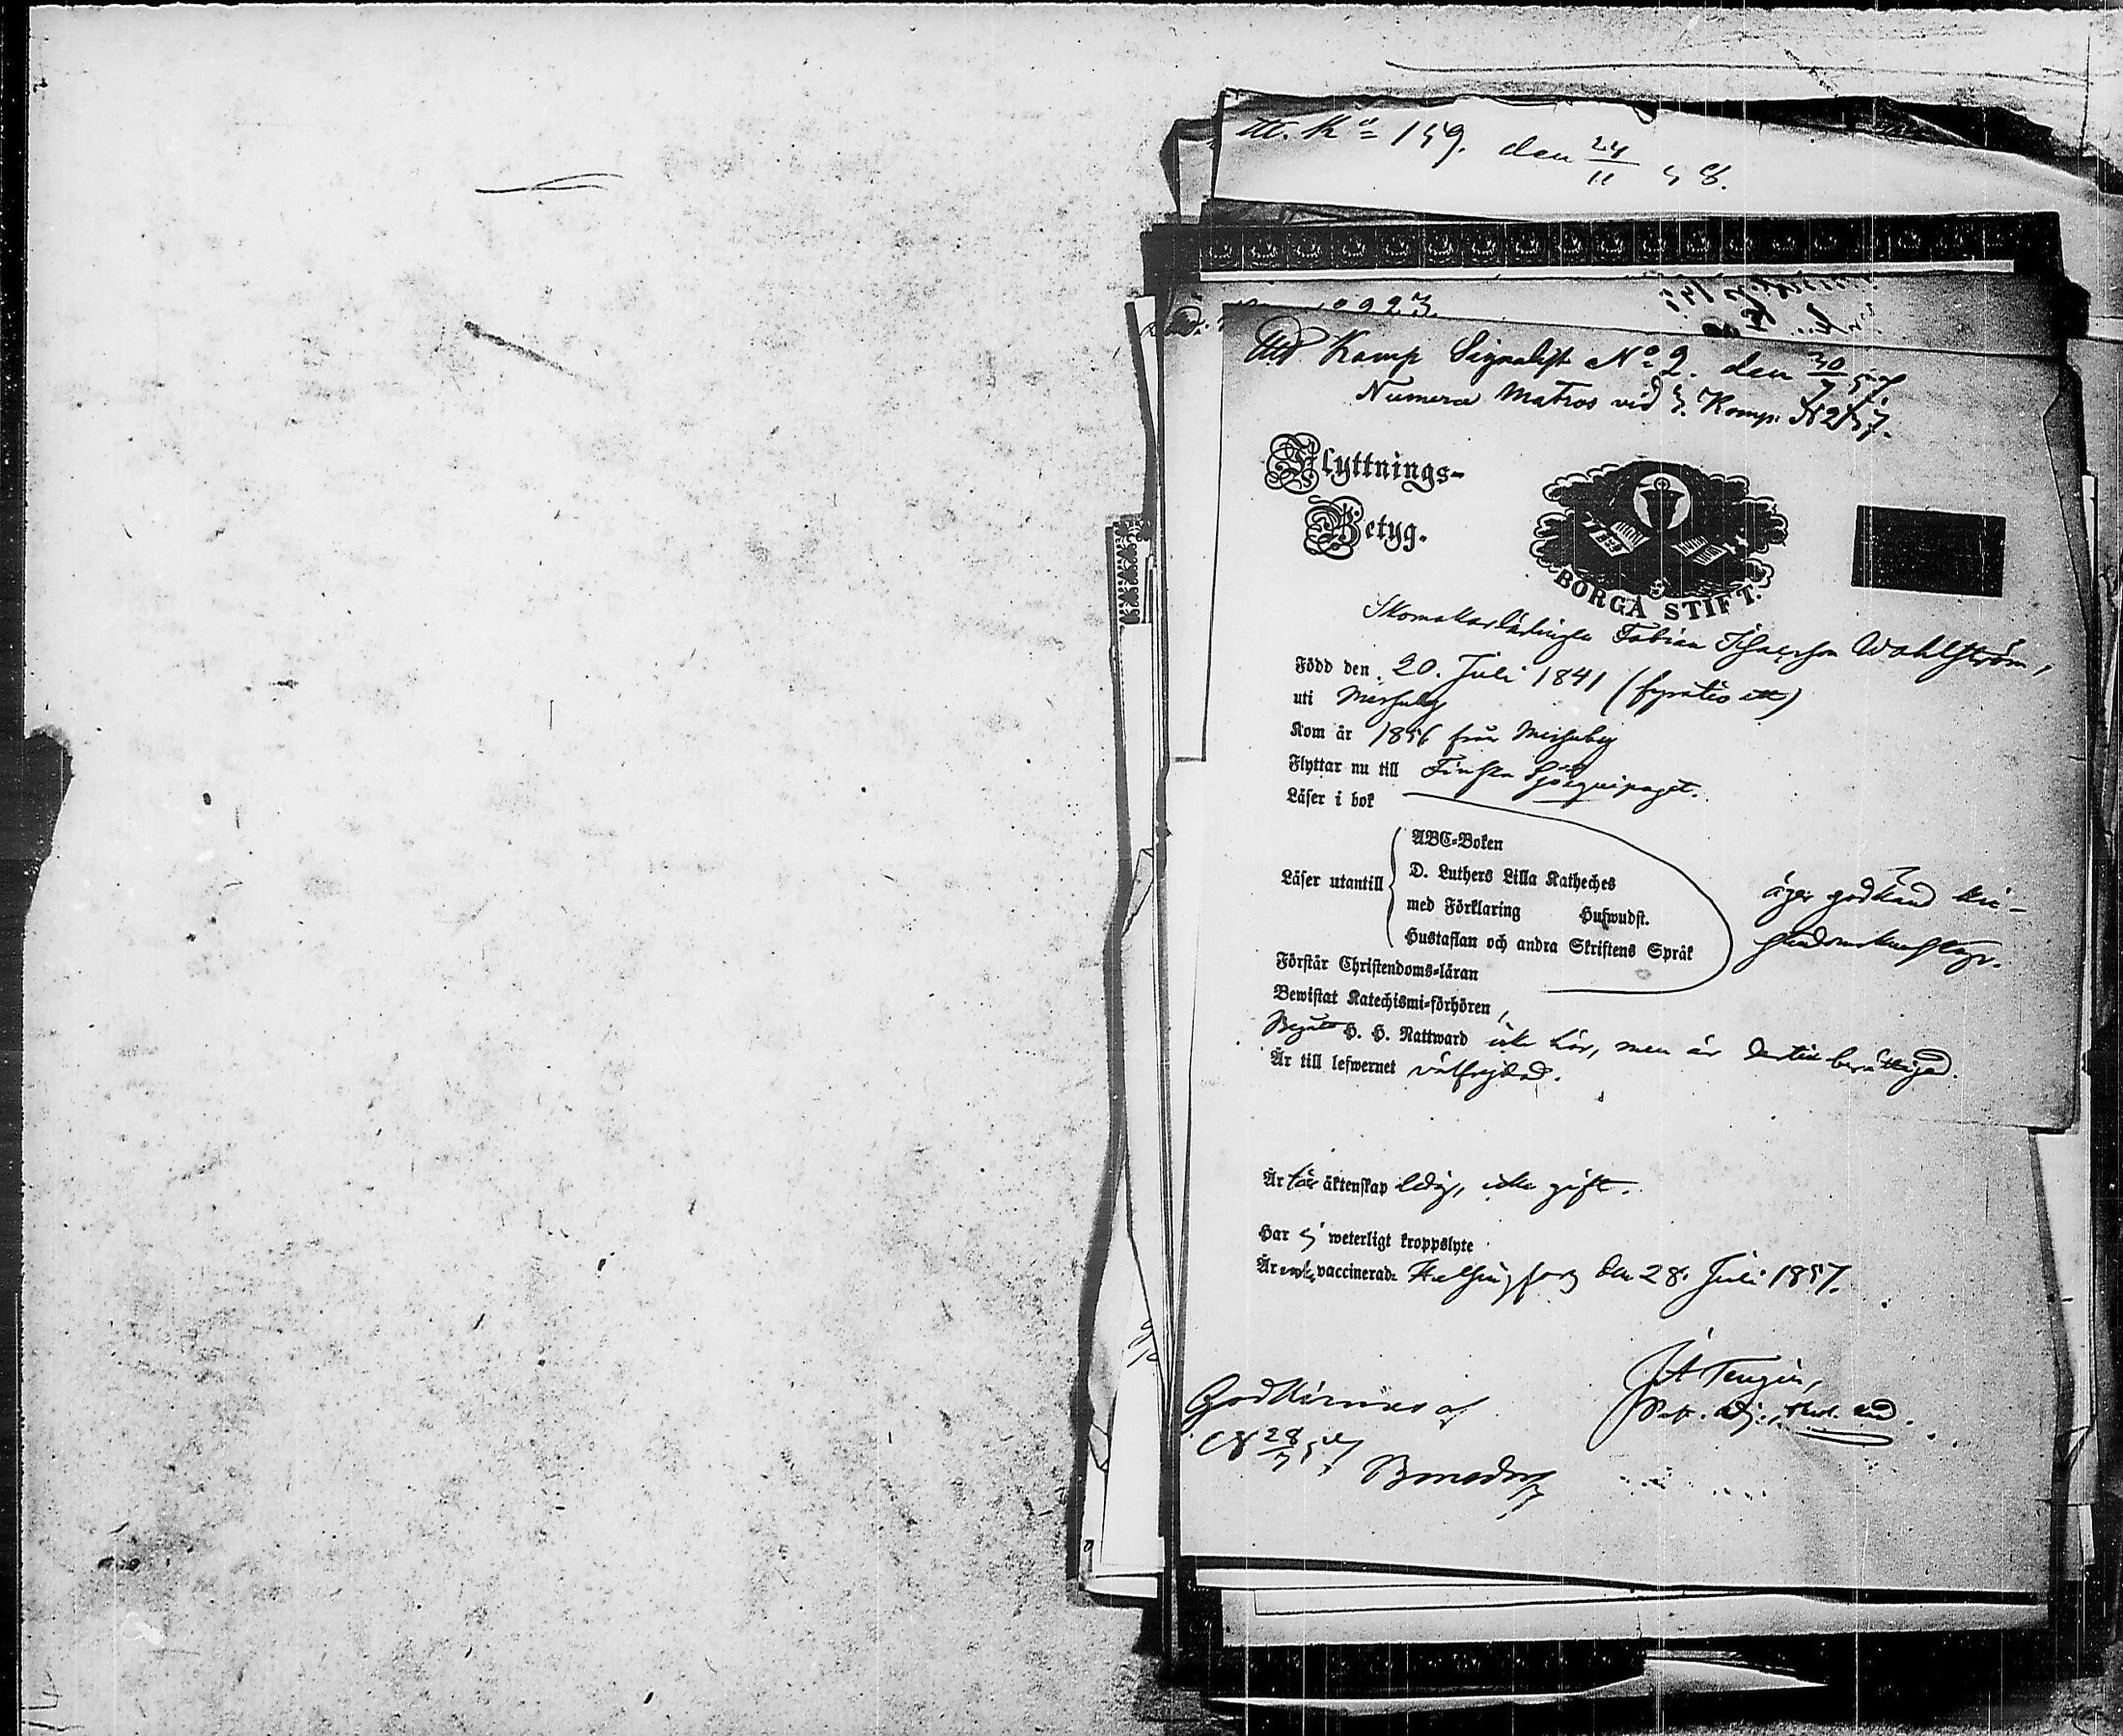 159. den 24/11 58.
Komp Signalist No 2. den 30/7 57
Numera Matros vid 3. Komp. N 257.
Flyttnings-
Betyg.
BORGÅ STIFT.
Skomakarlärlingen Fabian Wahlström,
Född den 20. Juli 1841 (fyratio ett)
uti
Kom år 1856 från
Flyttar nu till Finska Sjöequipaget.
Läser i bok
ABC-Boken
D. Luthers Lilla Katheches
Läser utantill
med Förklaring Hufwudst.
äger godkänd kri-
Hustaflan och andra Skriftens Språk
stendomskunskap.
Förstår Christendoms-läran
Bewistat Katechismi-förhören
Begått H. H. Nattward icke här, men är dertill berättigad.
Är till lefwernet välfrejdad.
Är för äktenskap ledig, icke gift.
Har weterligt kroppslyte
Är vaccinerad. Helsingfors den 28. Juli 1857.
J A Tengén,
Godkännes af
28/7 57